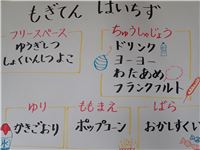 もぎてん はいちず
フリースペース
ゆうぎしつ
しょくいんしつよこ
ちゅうしゃじょう
ドリンク
ヨーヨー
わたあめ
フランクフルト
ゆり
かきごおり
ももまえ
ポップコーン
ばら
おかしすくい